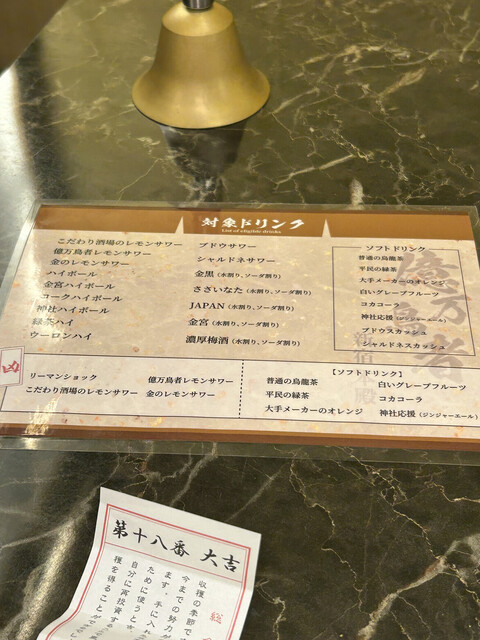 対象ドリンク
List of eligible drinks
こだわり酒場のレモンサワー
億万鳥者レモンサワー
金のレモンサワー
ハイボール
金宮ハイボール
コークハイボール
神社ハイボール
緑茶ハイ
ウーロンハイ
ブドウサワー
シャルドネサワー
金黒（水割り、ソーダ割り）
さざいなた（水割り、ソーダ割り）
JAPAN（水割り、ソーダ割り）
金宮（水割り、ソーダ割り）
濃厚梅酒（水割り、ソーダ割り）
ソフトドリンク
普通の烏龍茶
平民の緑茶
大手メーカーのオレンジ
白いグレープフルーツ
コカコーラ
神社応援（ジンジャーエール）
ブドウスカッシュ
シャルドネスカッシュ
凶
リーマンショック
億万鳥者レモンサワー
こだわり酒場のレモンサワー
金のレモンサワー
【ソフトドリンク】
普通の烏龍茶
白いグレープフルーツ
平民の緑茶
コカコーラ
大手メーカーのオレンジ
神社応援（ジンジャーエール）
第十八番 大吉
収穫の季節で
今までの努力が
ます。手に入れ
ために使うと
自分に再投資す
穫を得ることが